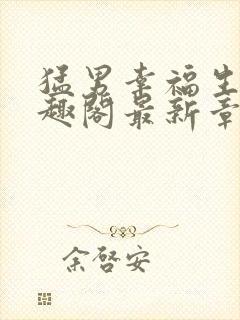 猛男幸福生
趣阁最新章
余啓安